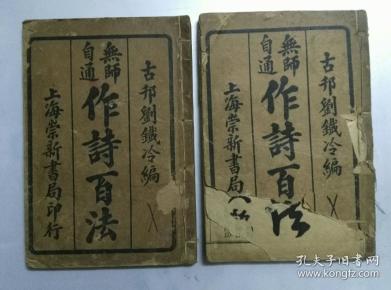 古邗劉鐵冷編
無師
自通
作詩百法
上海崇新書局印行
古邗劉鐵冷編
無師
自通
作詩百法
上海崇新書局
孔夫子旧书网